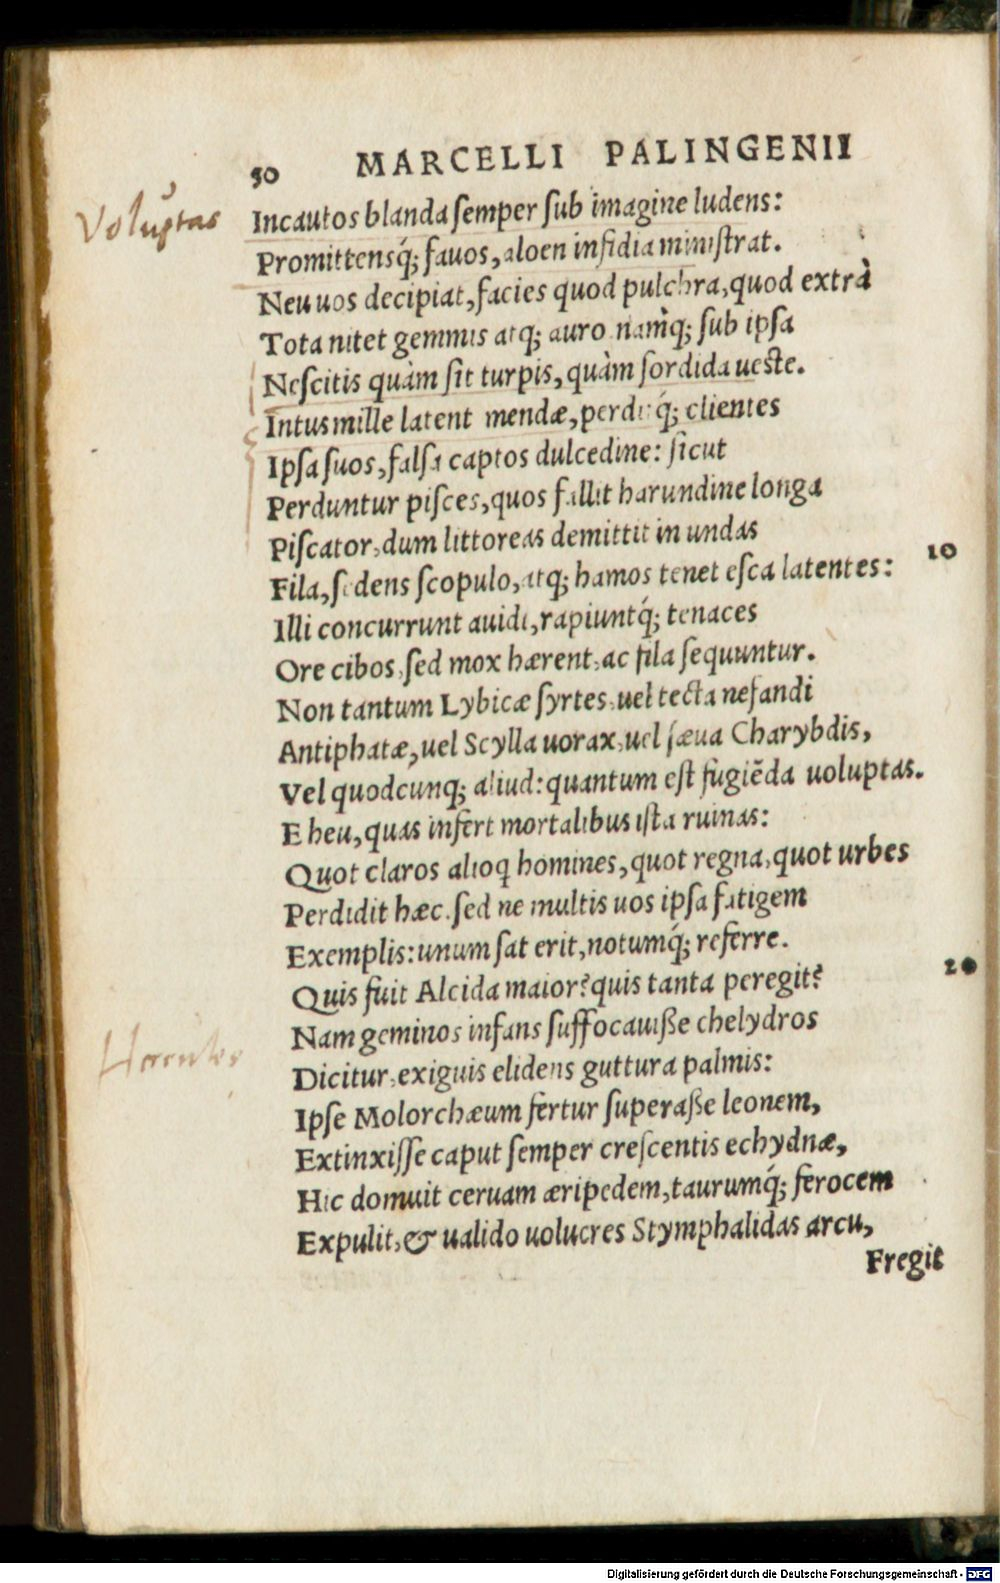 50 MARCELLI PALINGENII
Voluptas
Incautos blanda ſemper ſub imagine ludens:
Promittensq́; fauos, aloen inſidia miniſtrat.
Neu uos decipiat, facies quod pulchra, quod extrà
Tota nitet gemmis atq; auro namq̀; ſub ipſa
Neſcitis quàm ſit turpis, quàm ſordida ueſte.
Intus mille latent mendæ, perditq́; clientes
Ipſa ſuos, falſa captos dulcedine: ſicut
Perduntur piſces, quos fallit harundine longa
Piſcator, dum littoreas demittit in undas
Fila, ſedens ſcopulo, atq; hamos tenet eſca latentes: 10
Illi concurrunt auidi, rapiuntq́; tenaces
Ore cibos, ſed mox hærent, ac fila ſequuntur.
Non tantum Lybicæ ſyrtes, uel tecta nefandi
Antiphatæ, uel Scylla uorax, uel ſæua Charybdis,
Vel quodcunq; aliud: quantum eſt fugiēda uoluptas.
E heu, quas infert mortalibus iſta ruinas:
Quot claros alioq homines, quot regna, quot urbes
Perdidit hæc. ſed ne multis uos ipſa fatigem
Exemplis: unum ſat erit, notumq́; referre.
Quis fuit Alcida maior? quis tanta peregit? 20
Nam geminos infans ſuffocauiße chelydros
Hercules
Dicitur, exiguis elidens guttura palmis:
Ipſe Molorchæum fertur ſuperaße leonem,
Extinxiſſe caput ſemper creſcentis echydnæ,
Hic domuit ceruam æripedem, taurumq́; ferocem
Expulit, & ualido uolucres Stymphalidas arcu,
Fregit
Digitalisierung gefördert durch die Deutsche Forschungsgemeinschaft - DFG